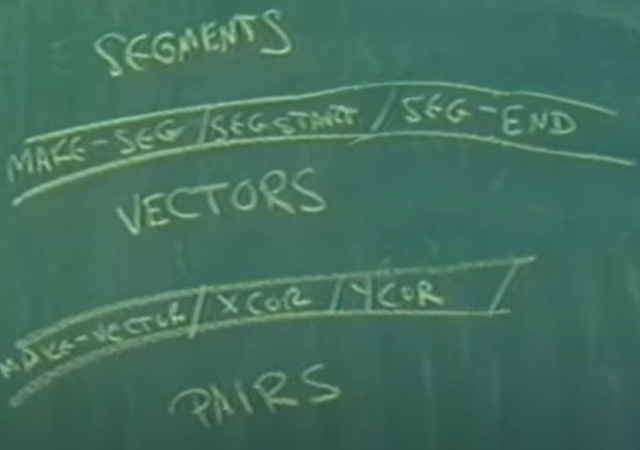 SEGMENTS
MAKE-SEG / SEGSTART / SEG-END
VECTORS
MAKE-VECTOR / XCOR / YCOR /
PAIRS